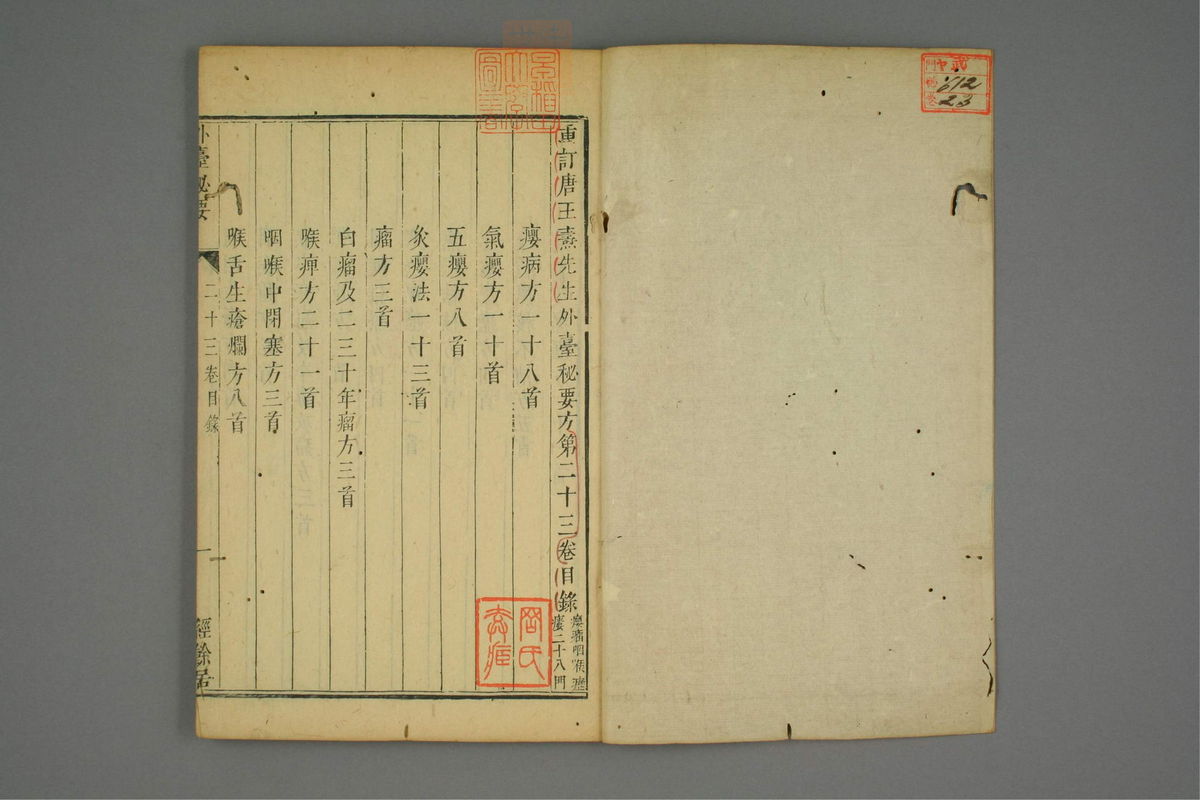 重訂唐王燾先生外臺秘要方第二十三卷目錄
癭瘤咽喉癧
瘻二十八門
癭病方一十八首
氣癭方一十首
五癭方八首
灸癭法一十三首
瘤方三首
白瘤及二三十年瘤方三首
喉痺方二十一首
咽喉中閉塞方三首
喉舌生瘡爛方八首
外臺秘要
二十三卷目錄
一
經餘居
612
23